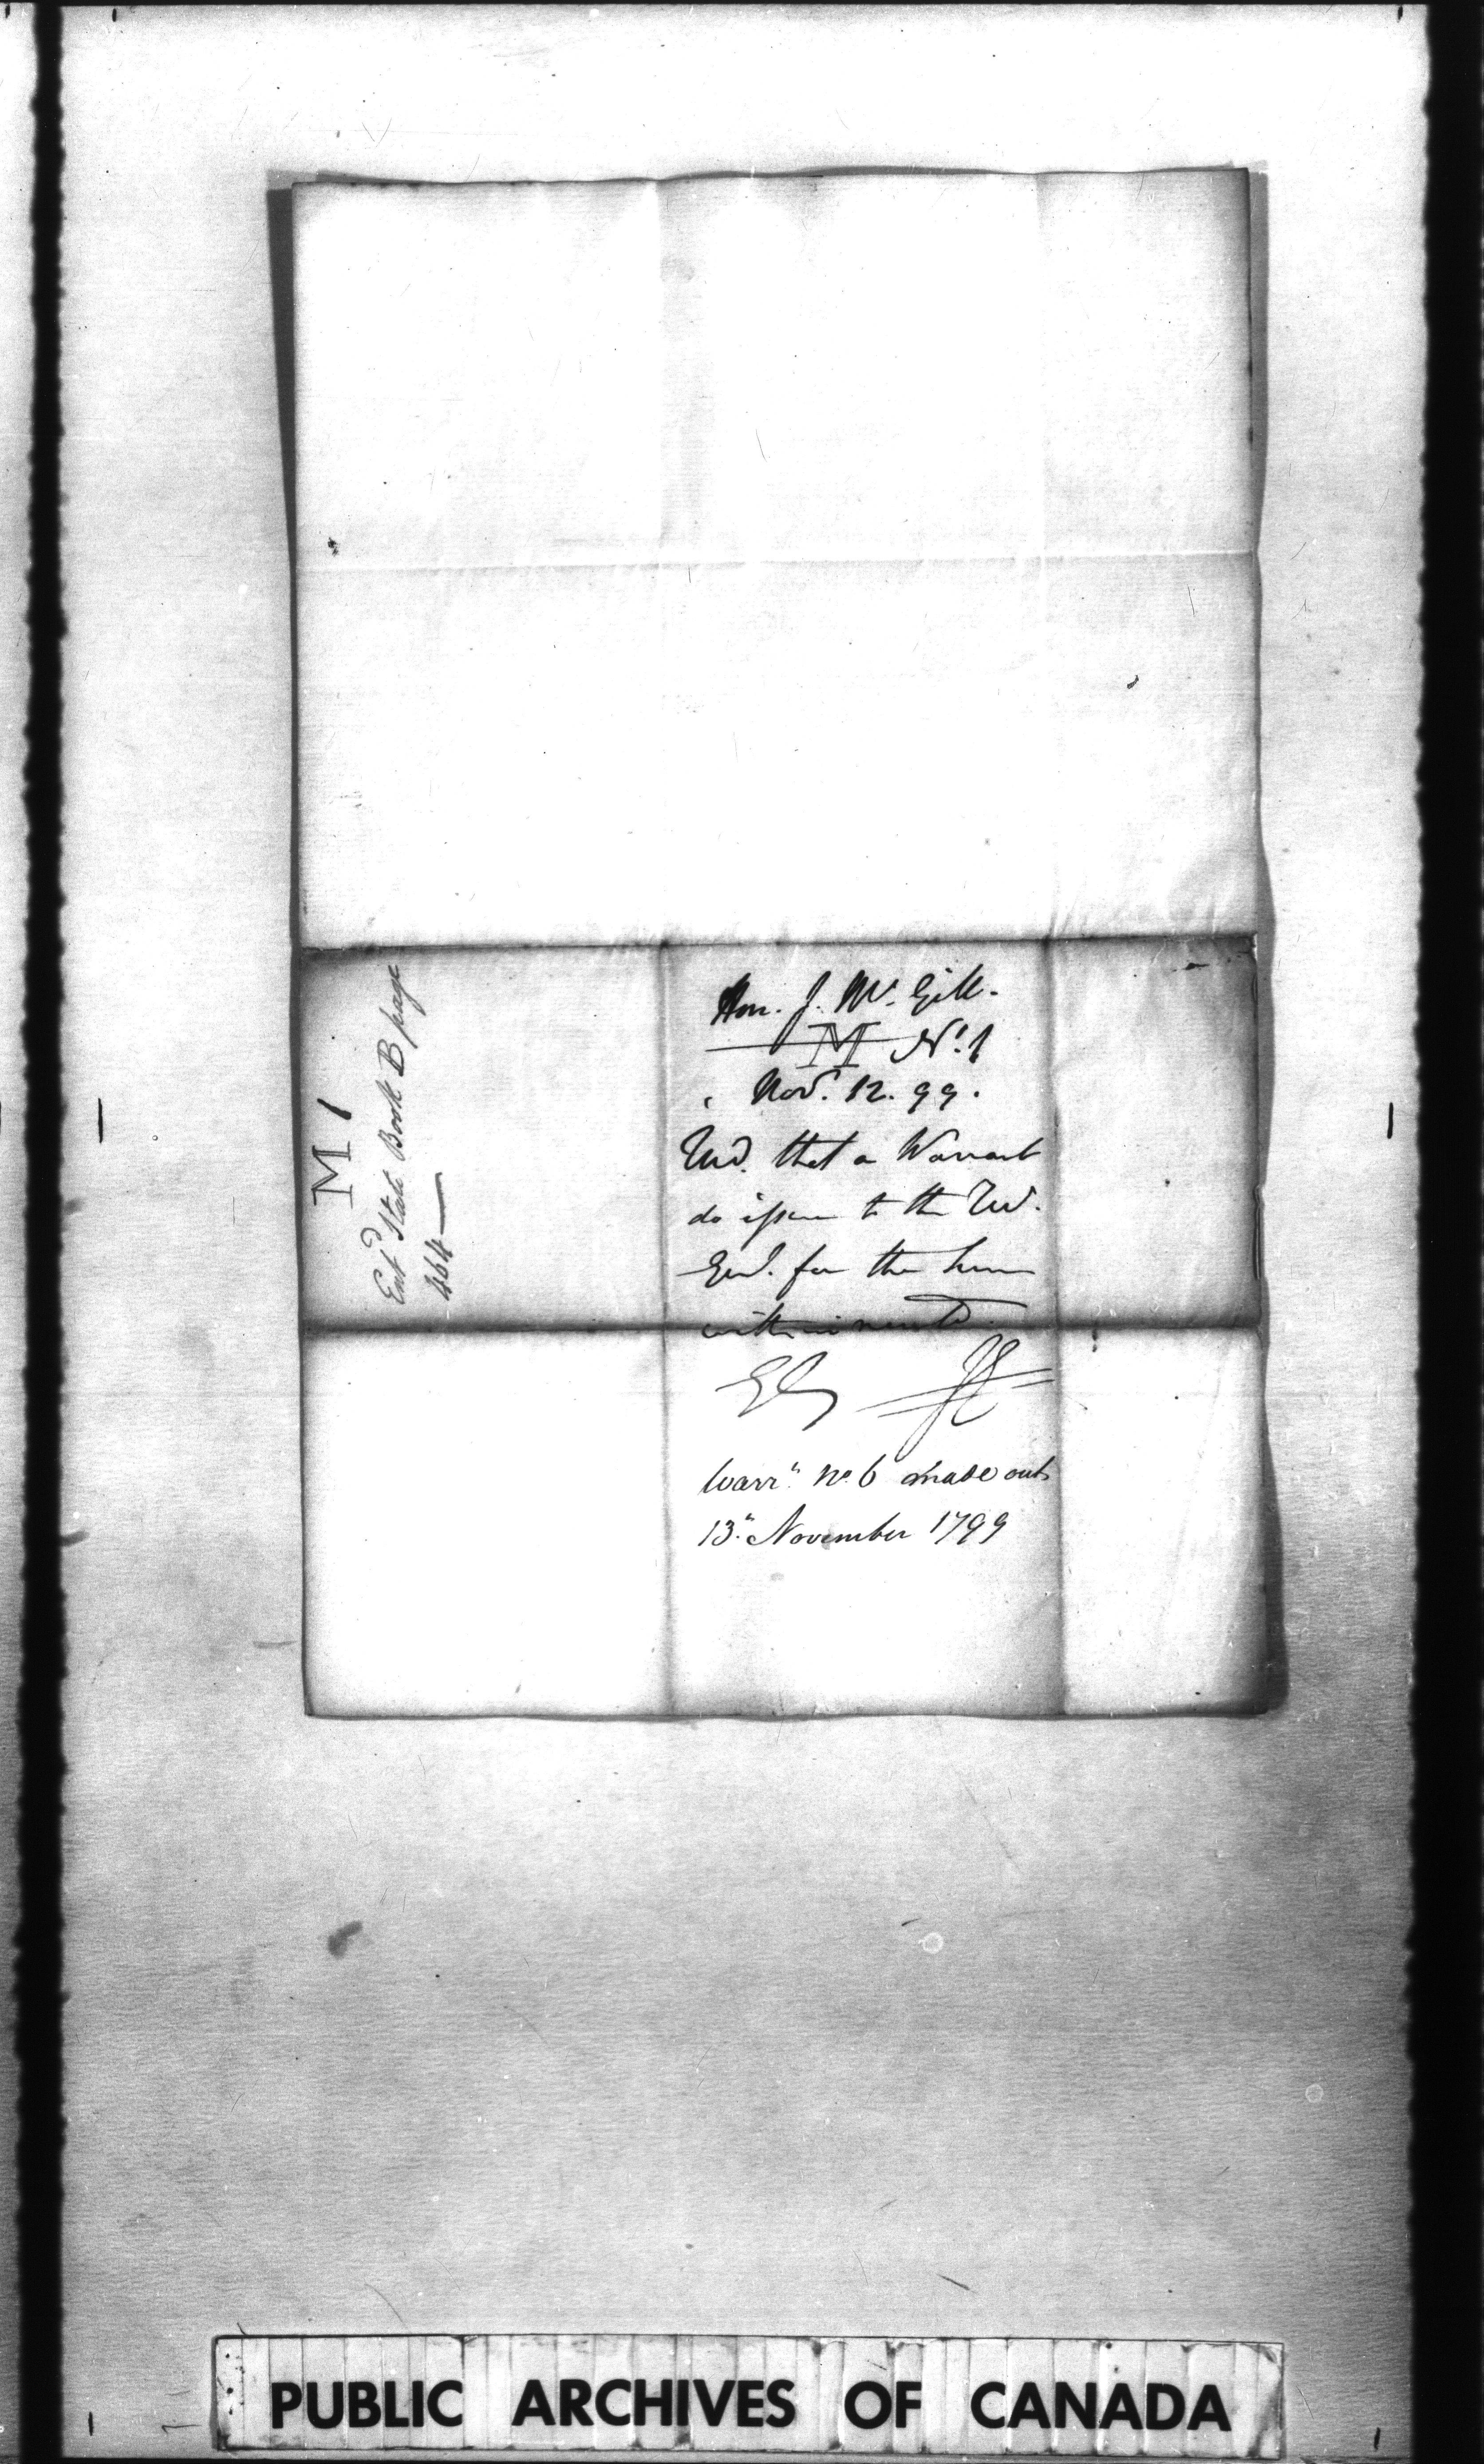 M 1
Ent.d State Book B page
464
Hon. J. Mc. Gill.
M No. 1
Nov. 12. 99.
that a Warrant
do issue to the
Genl. for the
within
Warrt. No. 6 made out
13th November 1799
PUBLIC ARCHIVES OF CANADA